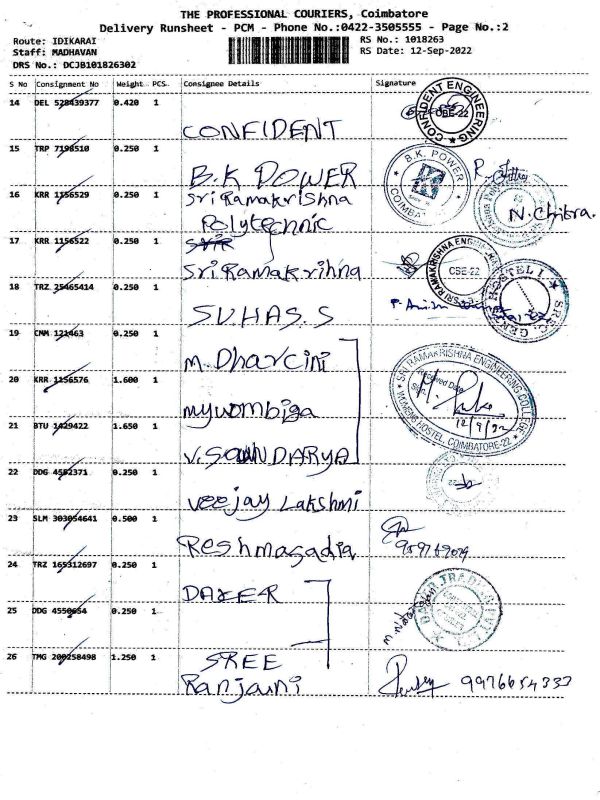 THE PROFESSIONAL COURIERS, Coimbatore
Delivery Runsheet - PCM - Phone No.:0422-3505555 - Page No.:2
Route: IDIKARAI RS No.: 1018263
Staff: MADHAVAN RS Date: 12-Sep-2022
DRS No.: DCJB101826302
S No Consignment No Weight PCS Consignee Details Signature
14 DEL 528439377 0.420 1
CONFIDENT
CONFIDENT ENGINEERING CBE-22
15 TRP 7198510 0.250 1
B.K POWER
B.K. POWER
16 KRR 1156529 0.250 1
Sri Ramakrishna
Polytechnic
N. Chitra.
17 KRR 1156522 0.250 1
Sri Ramakrihna
SRI RAMAKRISHNA ENGINEERING CBE-22
18 TRZ 25465414 0.250 1
SUHAS.S
HOSTEL I
19 CMM 121463 0.250 1
M. Dharcini
20 KRR 1156576 1.600 1
SRI RAMAKRISHNA ENGINEERING COLLEGE
WOMENS HOSTEL, COIMBATORE-22
12/9/22
21 BTU 1429422 1.650 1
V. SOWNDARYA
22 DDG 4552371 0.250 1
Veejay Lakshmi
23 SLM 303054641 0.500 1
Reshmasadia
24 TRZ 165312697 0.250 1
25 DDG 4550654 0.250 1
26 TMG 200258498 1.250 1
SREE
Ranjani